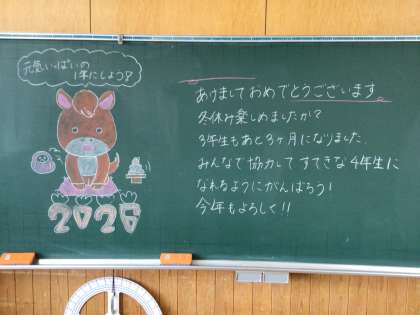 元気いっぱいの
1年にしよう♪
2026
あけましておめでとうございます
冬休み楽しめましたか?
3年生もあと3ヶ月になりました
みんなで協力して すてきな4年生に
なれるようにがんばろう!
今年もよろしく!!